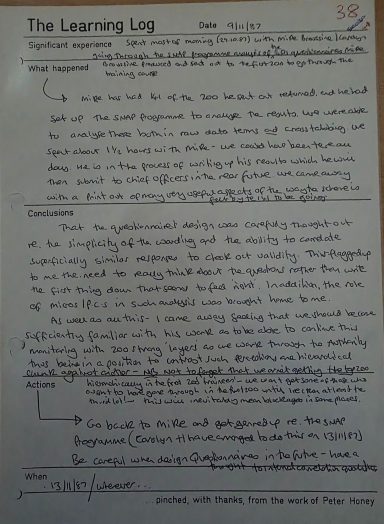 38
The Learning Log Date 9/11/87
Significant experience Spent most of morning (27.10.87) with Mike
going through the SNAP programme analysis of questionnaires Mike
What happened and sent out to the first 200 to go through the
training course
Mike has had 141 of the 200 he sent out returned, and he had
set up the SNAP programme to analyse the results. We were able
to analyse these both in raw data terms and cross tabbing we
spent about 1½ hours with Mike - we could have been there all
day. He is in the process of writing up his results which he will
then submit to chief officers in the near future we came away
with a print out of many very useful aspects of the way the scheme is
felt by to be going
Conclusions
That the questionnaire design was carefully thought out
re. the simplicity of the wording and the ability to correlate
superficially similar responses to check out validity. This flagged up
to me the need to really think about the questions rather than write
the first thing down that seems to feel right. In addition, the role
of micros in such analysis was brought home to me.
As well as all this - I came away feeling that we should become
sufficiently familiar with his work as to be able to continue this
monitoring with 200 strong layers as we work through the Authority
thus being in a position to contrast such perceptions one hierarchical
chunk against another - NB Not to forget that we aren't getting the top 200
Actions hierarchically in the first 200 trained - we want get some of those who
ought to have gone through in the first 200 until 1/2 even at the
third lot - this will inevitably mean blockages in some places.
Go back to Mike and get genned up re. the SNAP
Programme (Carolyn & I have arranged to do this on 13/11/87)
Be careful when design Questionnaires in the future - have a
thought to internal correlation questions
When
13/11/87 / whenever...
...pinched, with thanks, from the work of Peter Honey